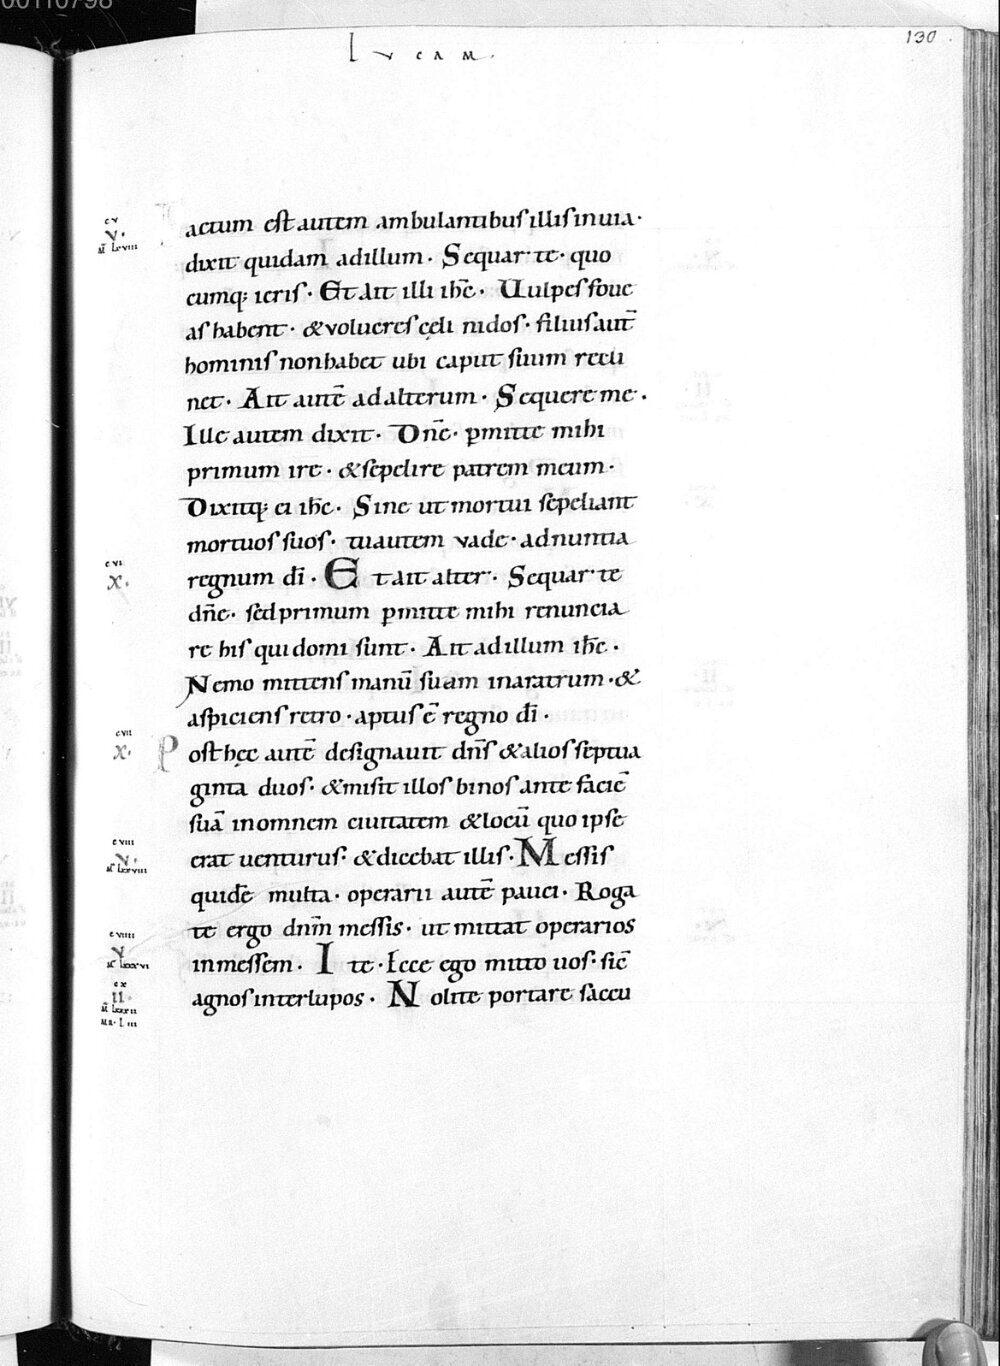 00110798
130
Lucam.
cv
v.
mt lxviii
Factum est autem ambulantibus illis in uia·
dixit quidam ad illum· Sequar te· quo
cumq; ieris· Et ait illi ihc̄· Uulpes foue
as habent· & volucres cęli nidos· filius aut̄
hominis non habet ubi caput suum recli
net· Ait autē ad alterum· Sequere me·
Ille autem dixit· Dn̄e· pmitte mihi
primum ire· & sepelire patrem meum·
Dixitq; ei ihc̄· Sine ut mortui sepeliant
mortuos suos· tu autem vade· adnuntia
cvi
x.
regnum dī· Et ait alter· Sequar te
dn̄e· sed primum pmitte mihi renuncia
re his qui domi sunt· Ait ad illum ihc̄·
Nemo mittens manū suam in aratrum· &
aspiciens retro· aptus ē regno dī·
cvii
x.
Post hęc autē designauit dn̄s & alios septua
ginta duos· & misit illos binos ante faciē
suā in omnem ciuitatem & locū quo ipse
cviii
v.
mt lxxviii
erat uenturus· & dicebat illis· Messis
quidē multa· operarii autē pauci· Roga
te ergo dnm̄ messis· ut mittat operarios
cviiii
v
mt lxxxvi
in messem· Ite· Ecce ego mitto uos· sic̄
cx
ii.
mt lxxxii
mr· liii
agnos inter lupos· Nolite portare saccu